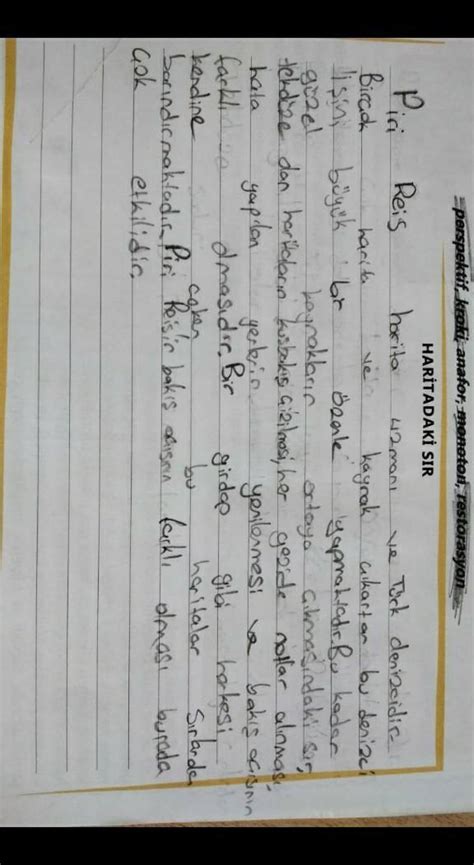 perspektif, kroki, anafor, monoton, restorasyon
HARİTADAKİ SIR
Piri Reis harita uzmanı ve Türk denizcidir.
Birçok harita ve kaynak çıkartan bu denizci
işini büyük bir özenle yapmaktadır. Bu kadar
güzel kaynakların ortaya çıkmasındaki sır,
haritaların kuşbakışı çizilmesi, her gezide notlar alınması,
hala yapılan yerlerin yenilenmesi ve bakış açısının
farklı olmasıdır. Bir girdap gibi herkesi
kendine çeken bu haritalar sırlarda
barındırmaktadır. Piri Reis'in bakış açısının farklı olması burada
çok etkilidir.